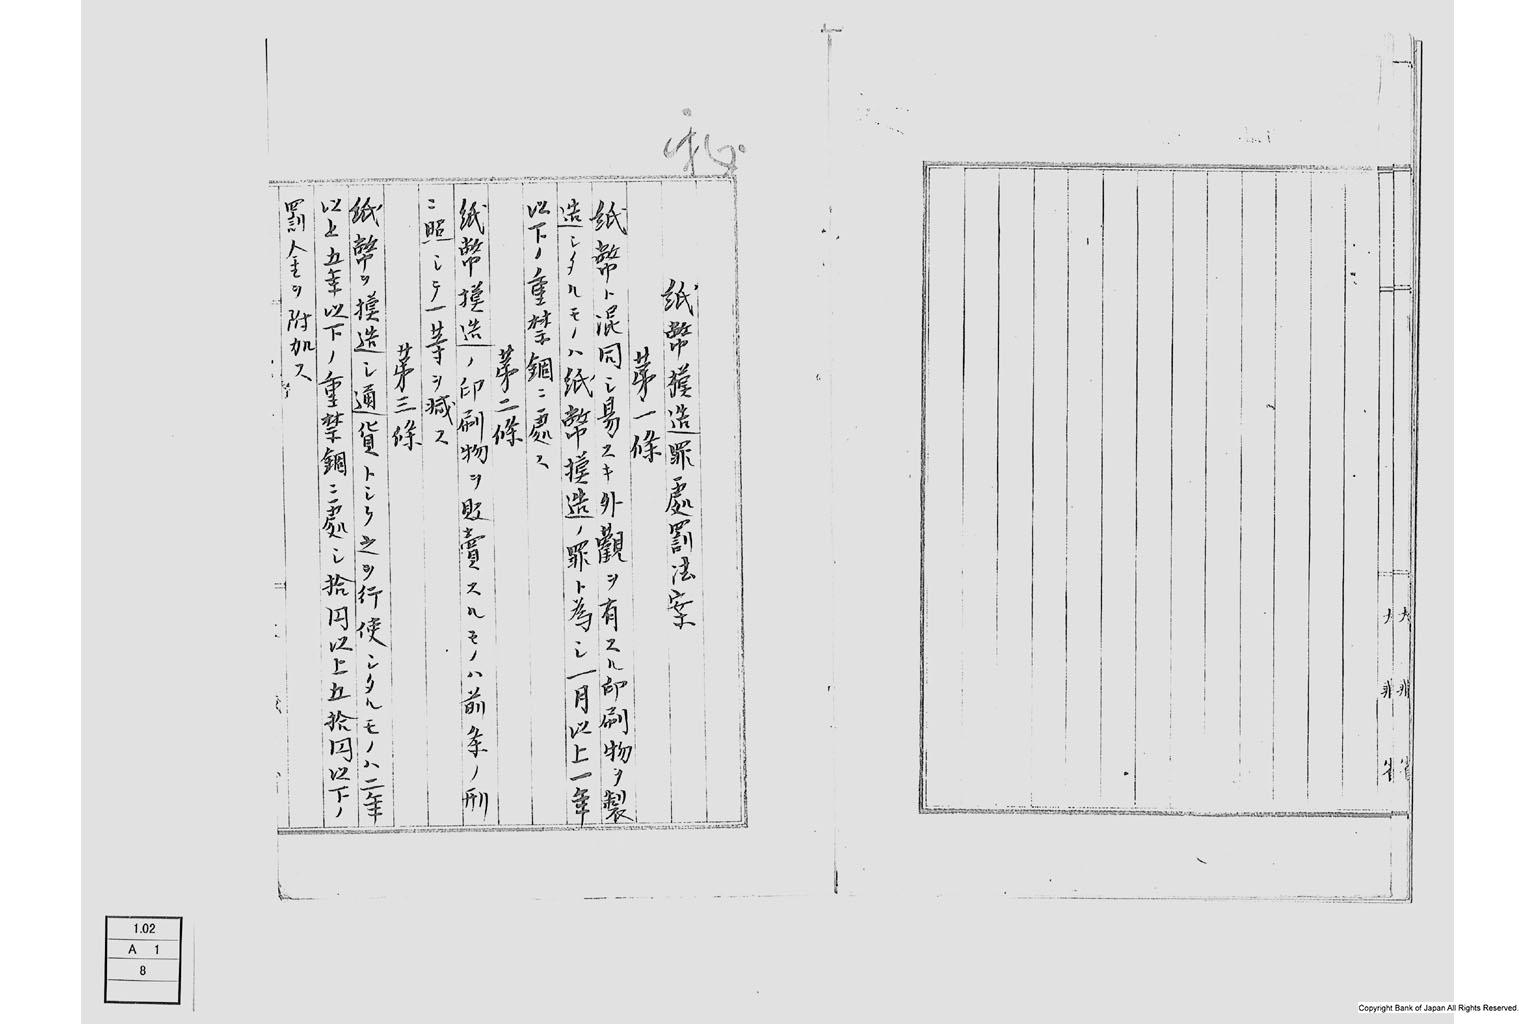 紙幣摸造罪處罰法案
第一條
紙幣ト混同シ易スキ外觀ヲ有スル印刷物ヲ製
造シタルモノハ紙幣摸造ノ罪ト為シ一月以上一年
以下ノ重禁錮ニ處ス
第二條
紙幣摸造ノ印刷物ヲ販賣スルモノハ前条ノ刑
ニ照シテ一等ヲ減ス
第三條
紙幣ヲ摸造シ通貨トシテ之ヲ行使シタルモノハ二年
以上五年以下ノ重禁錮ニ處シ拾円以上五拾円以下ノ
罰金ヲ附加ス
1.02
A 1
8
Copyright Bank of Japan All Rights Reserved.